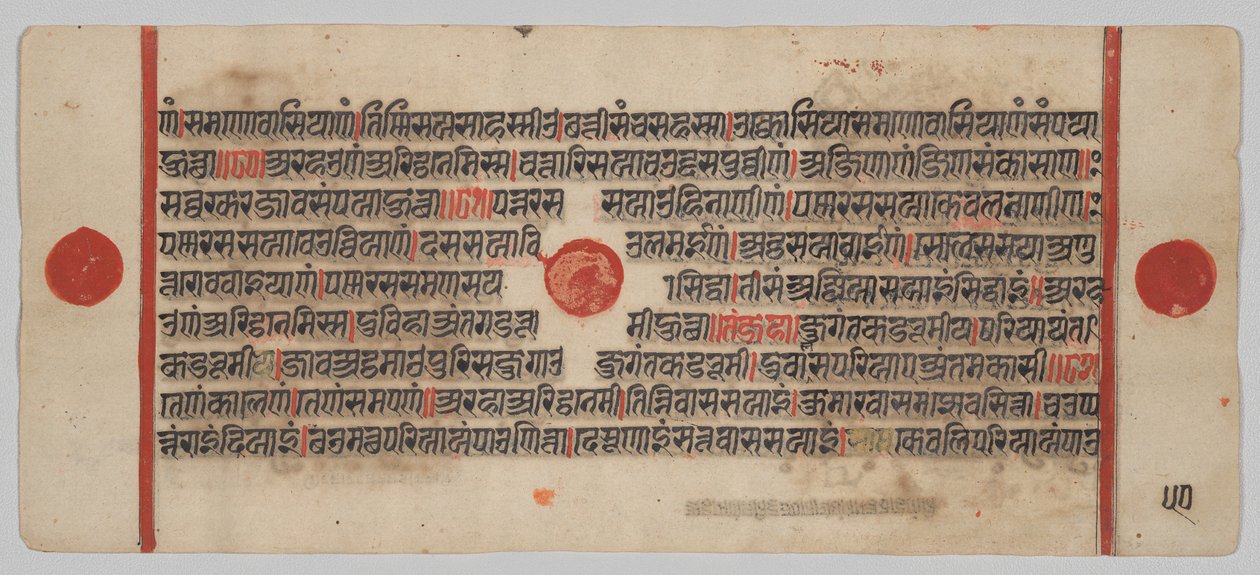 णं।समणोवासियाणं।तिन्निसयसाहस्सीउ।छत्तीसंचसहस्सा।उक्कोसियासमणोवासियाणंसंपया
हुत्था॥अरहउणंअरिट्ठनेमिस्स।चत्तारिसयाचउद्दसपुव्वीणं।अजिणाणंजिणसंकासाणं॥
सव्वक्खरजावसंपयाहुत्था॥पन्नरस सयाउहिनाणीणं।पन्नरससयाकेवलनाणीणं।
पन्नरससयावेउव्वियाणं।दससयावि उलमईणं।अट्ठसयावाईणं।सोलससयाअणु
त्तरोववाईयाणं।पन्नरससमणसय सिद्धा।तीसंअज्जियासयाइंसिद्धाइं॥अरह
उणंअरिट्ठनेमिस्स।दुविहाअंतगडभू मीहुत्था॥तंजहा।जुगंतकडभूमीय।परियायंत
कडभूमीय।जावअट्ठमाउपुरिसजुगाउ जुगंतकडभूमी।दुवासपरियाएअंतमकासी॥
तेणंकालेणं।तेणंसमएणं॥अरहाअरिट्ठनेमी।तिन्निवाससयाइं।कुमारवासमज्झेवसित्ता।चउप्प
न्नंराइंदियाइं।छउमत्थपरियायंपाउणित्ता।देसूणाइंसत्तवाससयाइं।केवलिपरियायंपाउ
५०